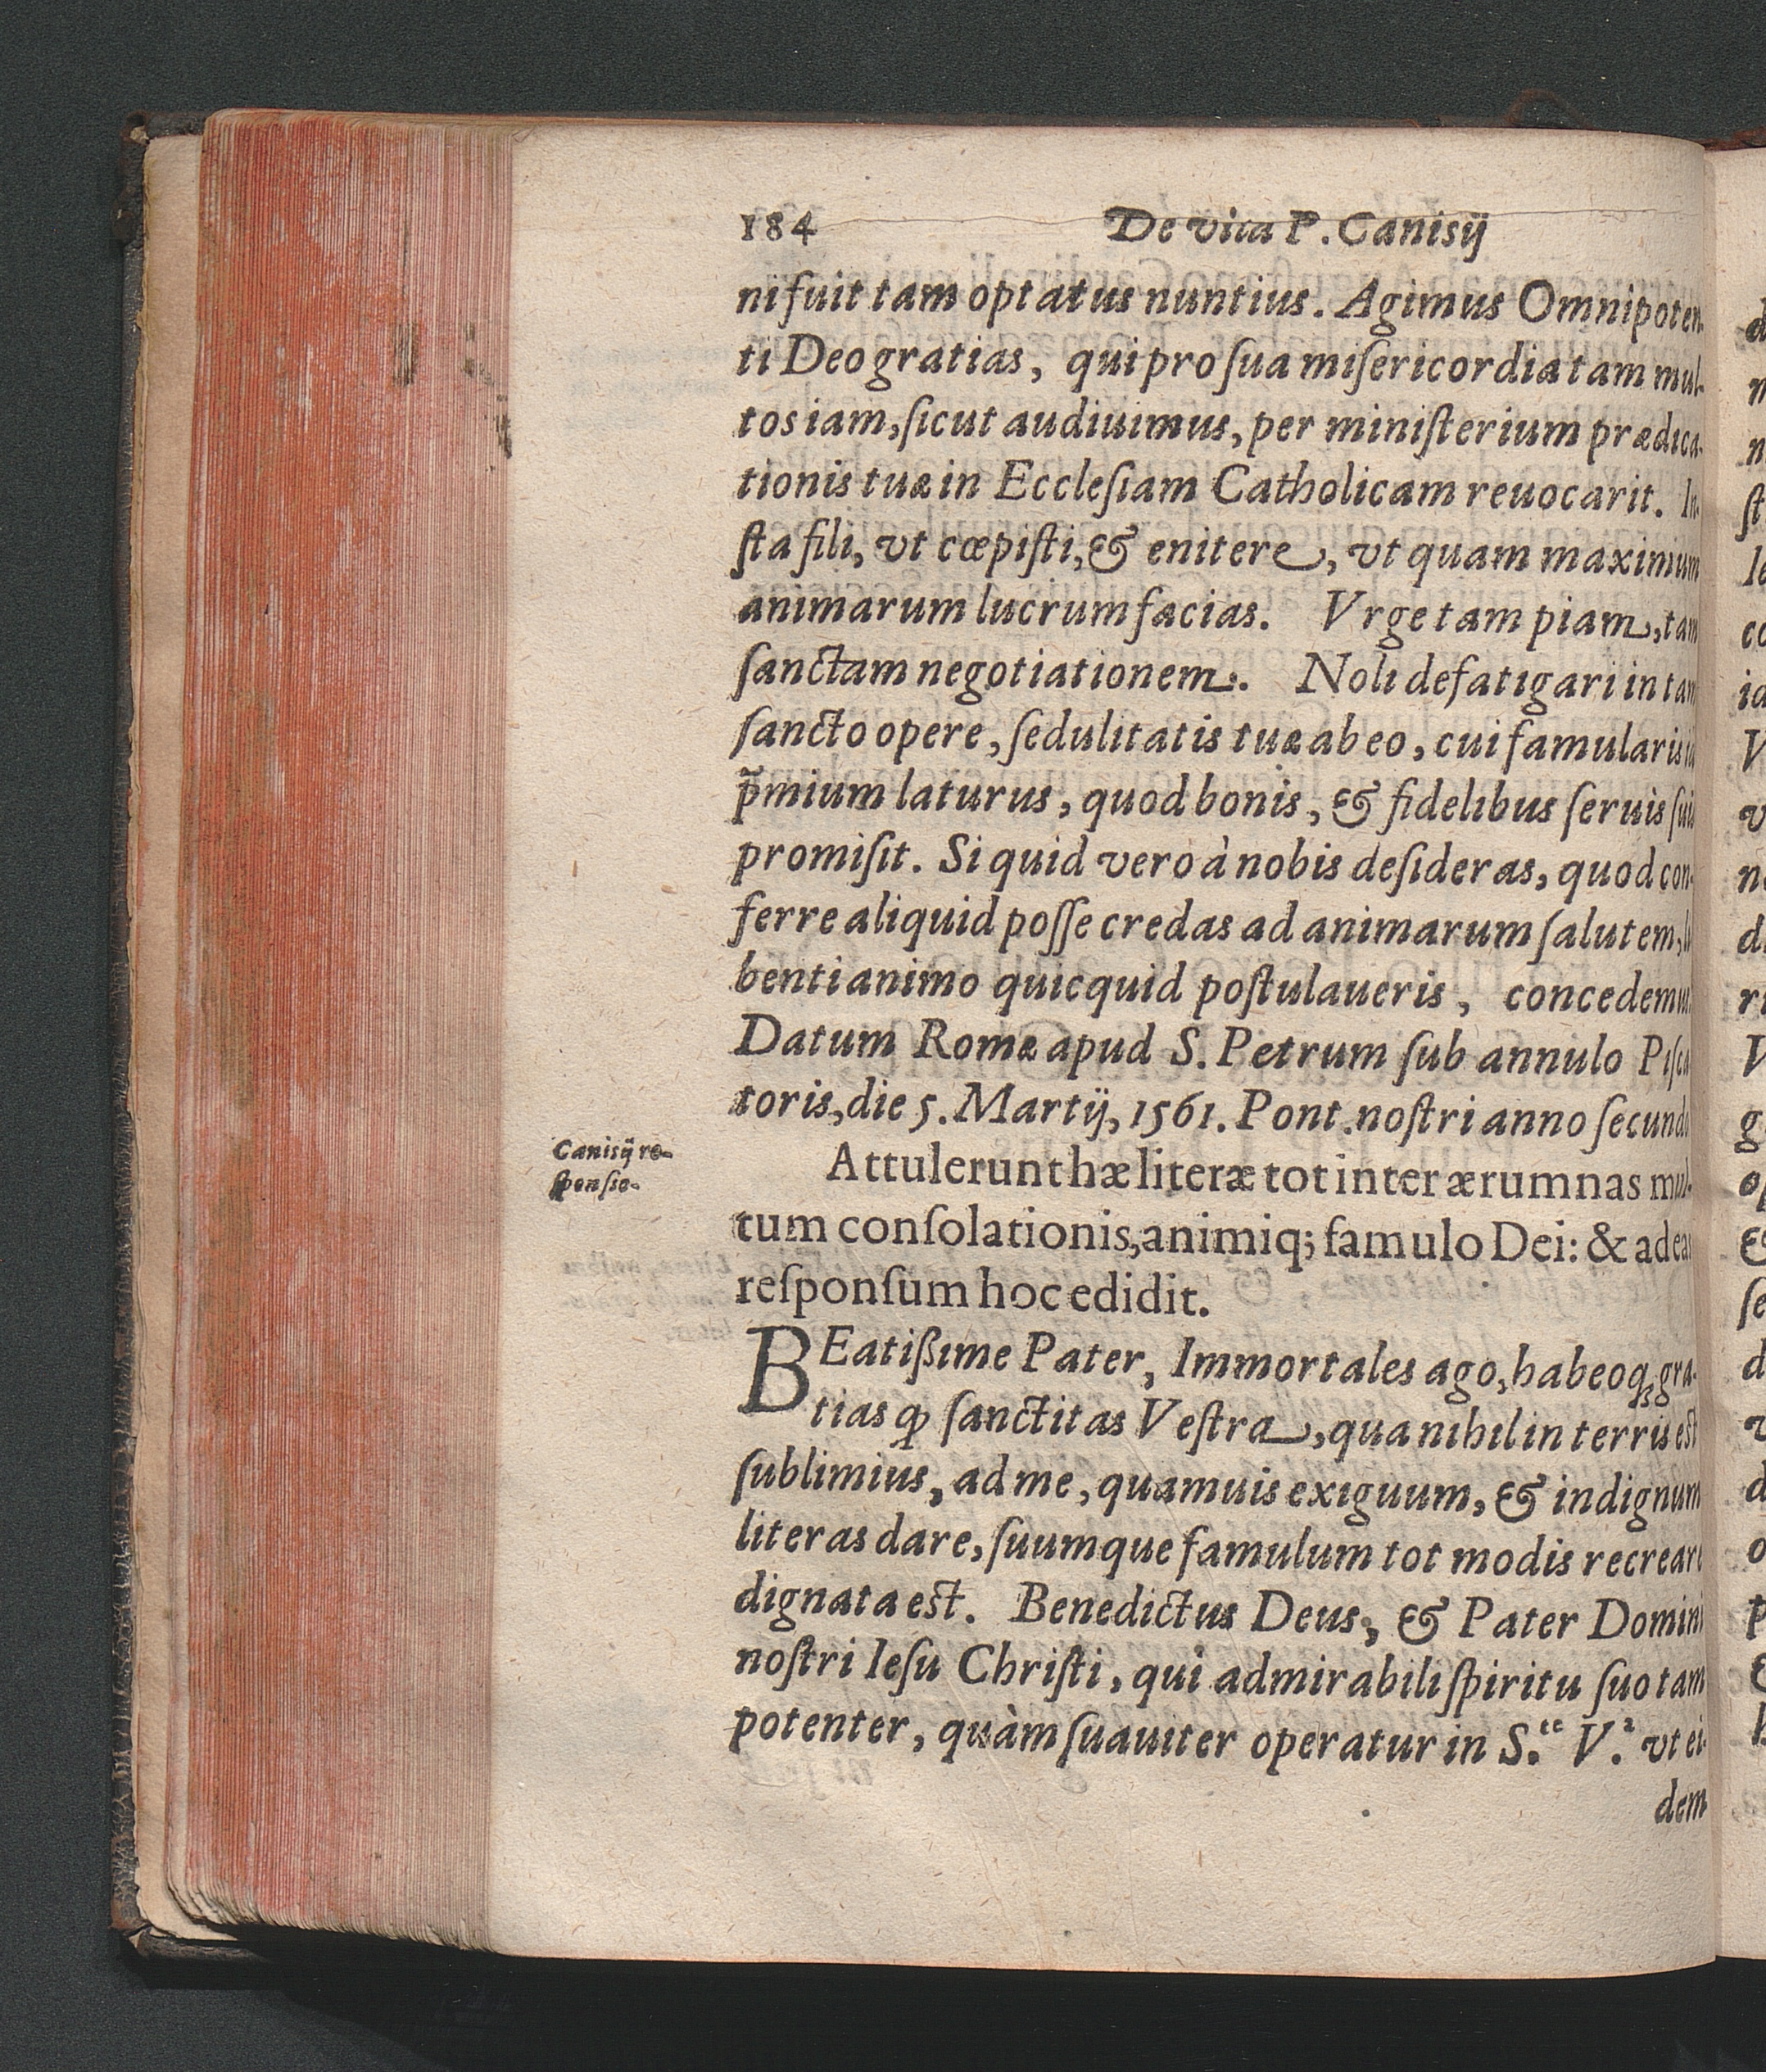 184 De vita P. Canisij
ni fuit tam optatus nuntius. Agimus Omnipoten-
ti Deo gratias, qui pro sua misericordia tam mul-
tos iam, sicut audiuimus, per ministerium prædica-
tionis tuæ in Ecclesiam Catholicam reuocarit. In-
sta fili, vt cœpisti, & enitere, vt quam maximum
animarum lucrum facias. Vrge tam piam, tam
sanctam negotiationem. Noli defatigari in tam
sancto opere, sedulitatis tuæ ab eo, cui famularis
p̃mium laturus, quod bonis, & fidelibus seruis suis
promisit. Si quid vero à nobis desideras, quod con-
ferre aliquid posse credas ad animarum salutem, li-
benti animo quicquid postulaueris, concedemus.
Datum Romæ apud S. Petrum sub annulo Pisca-
toris, die 5. Martij, 1561. Pont. nostri anno secundo
Canisij re-
sponsio.
Attulerunt hæ literæ tot inter ærumnas mul-
tum consolationis, animiq; famulo Dei: & ad eas
responsum hoc edidit.
BEatißime Pater, Immortales ago, habeoq; gra-
tias ꝙ sanctitas Vestra, qua nihil in terris est
sublimius, ad me, quamuis exiguum, & indignum
literas dare, suumque famulum tot modis recreare
dignata est. Benedictus Deus, & Pater Domini
nostri Iesu Christi, qui admirabili spiritu suo tam
potenter, quàm suauiter operatur in S.te V.a vt ei-
dem